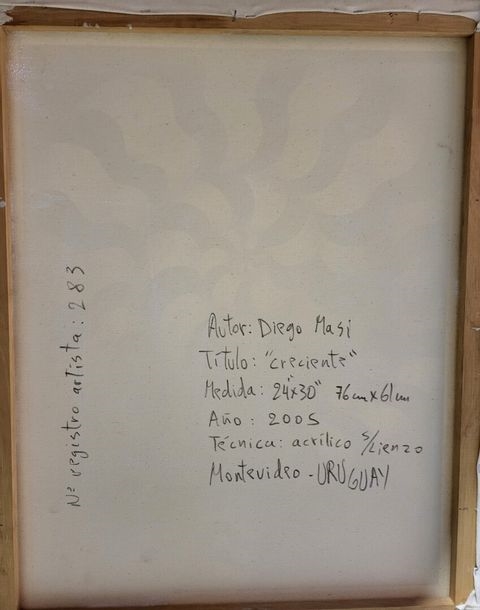 Autor: Diego Masi
Título: "creciente"
Medida: 24"x30" 76cm x 61cm
Año: 2005
Técnica: acrílico s/Lienzo
Montevideo - URUGUAY
Nº registro artista: 283